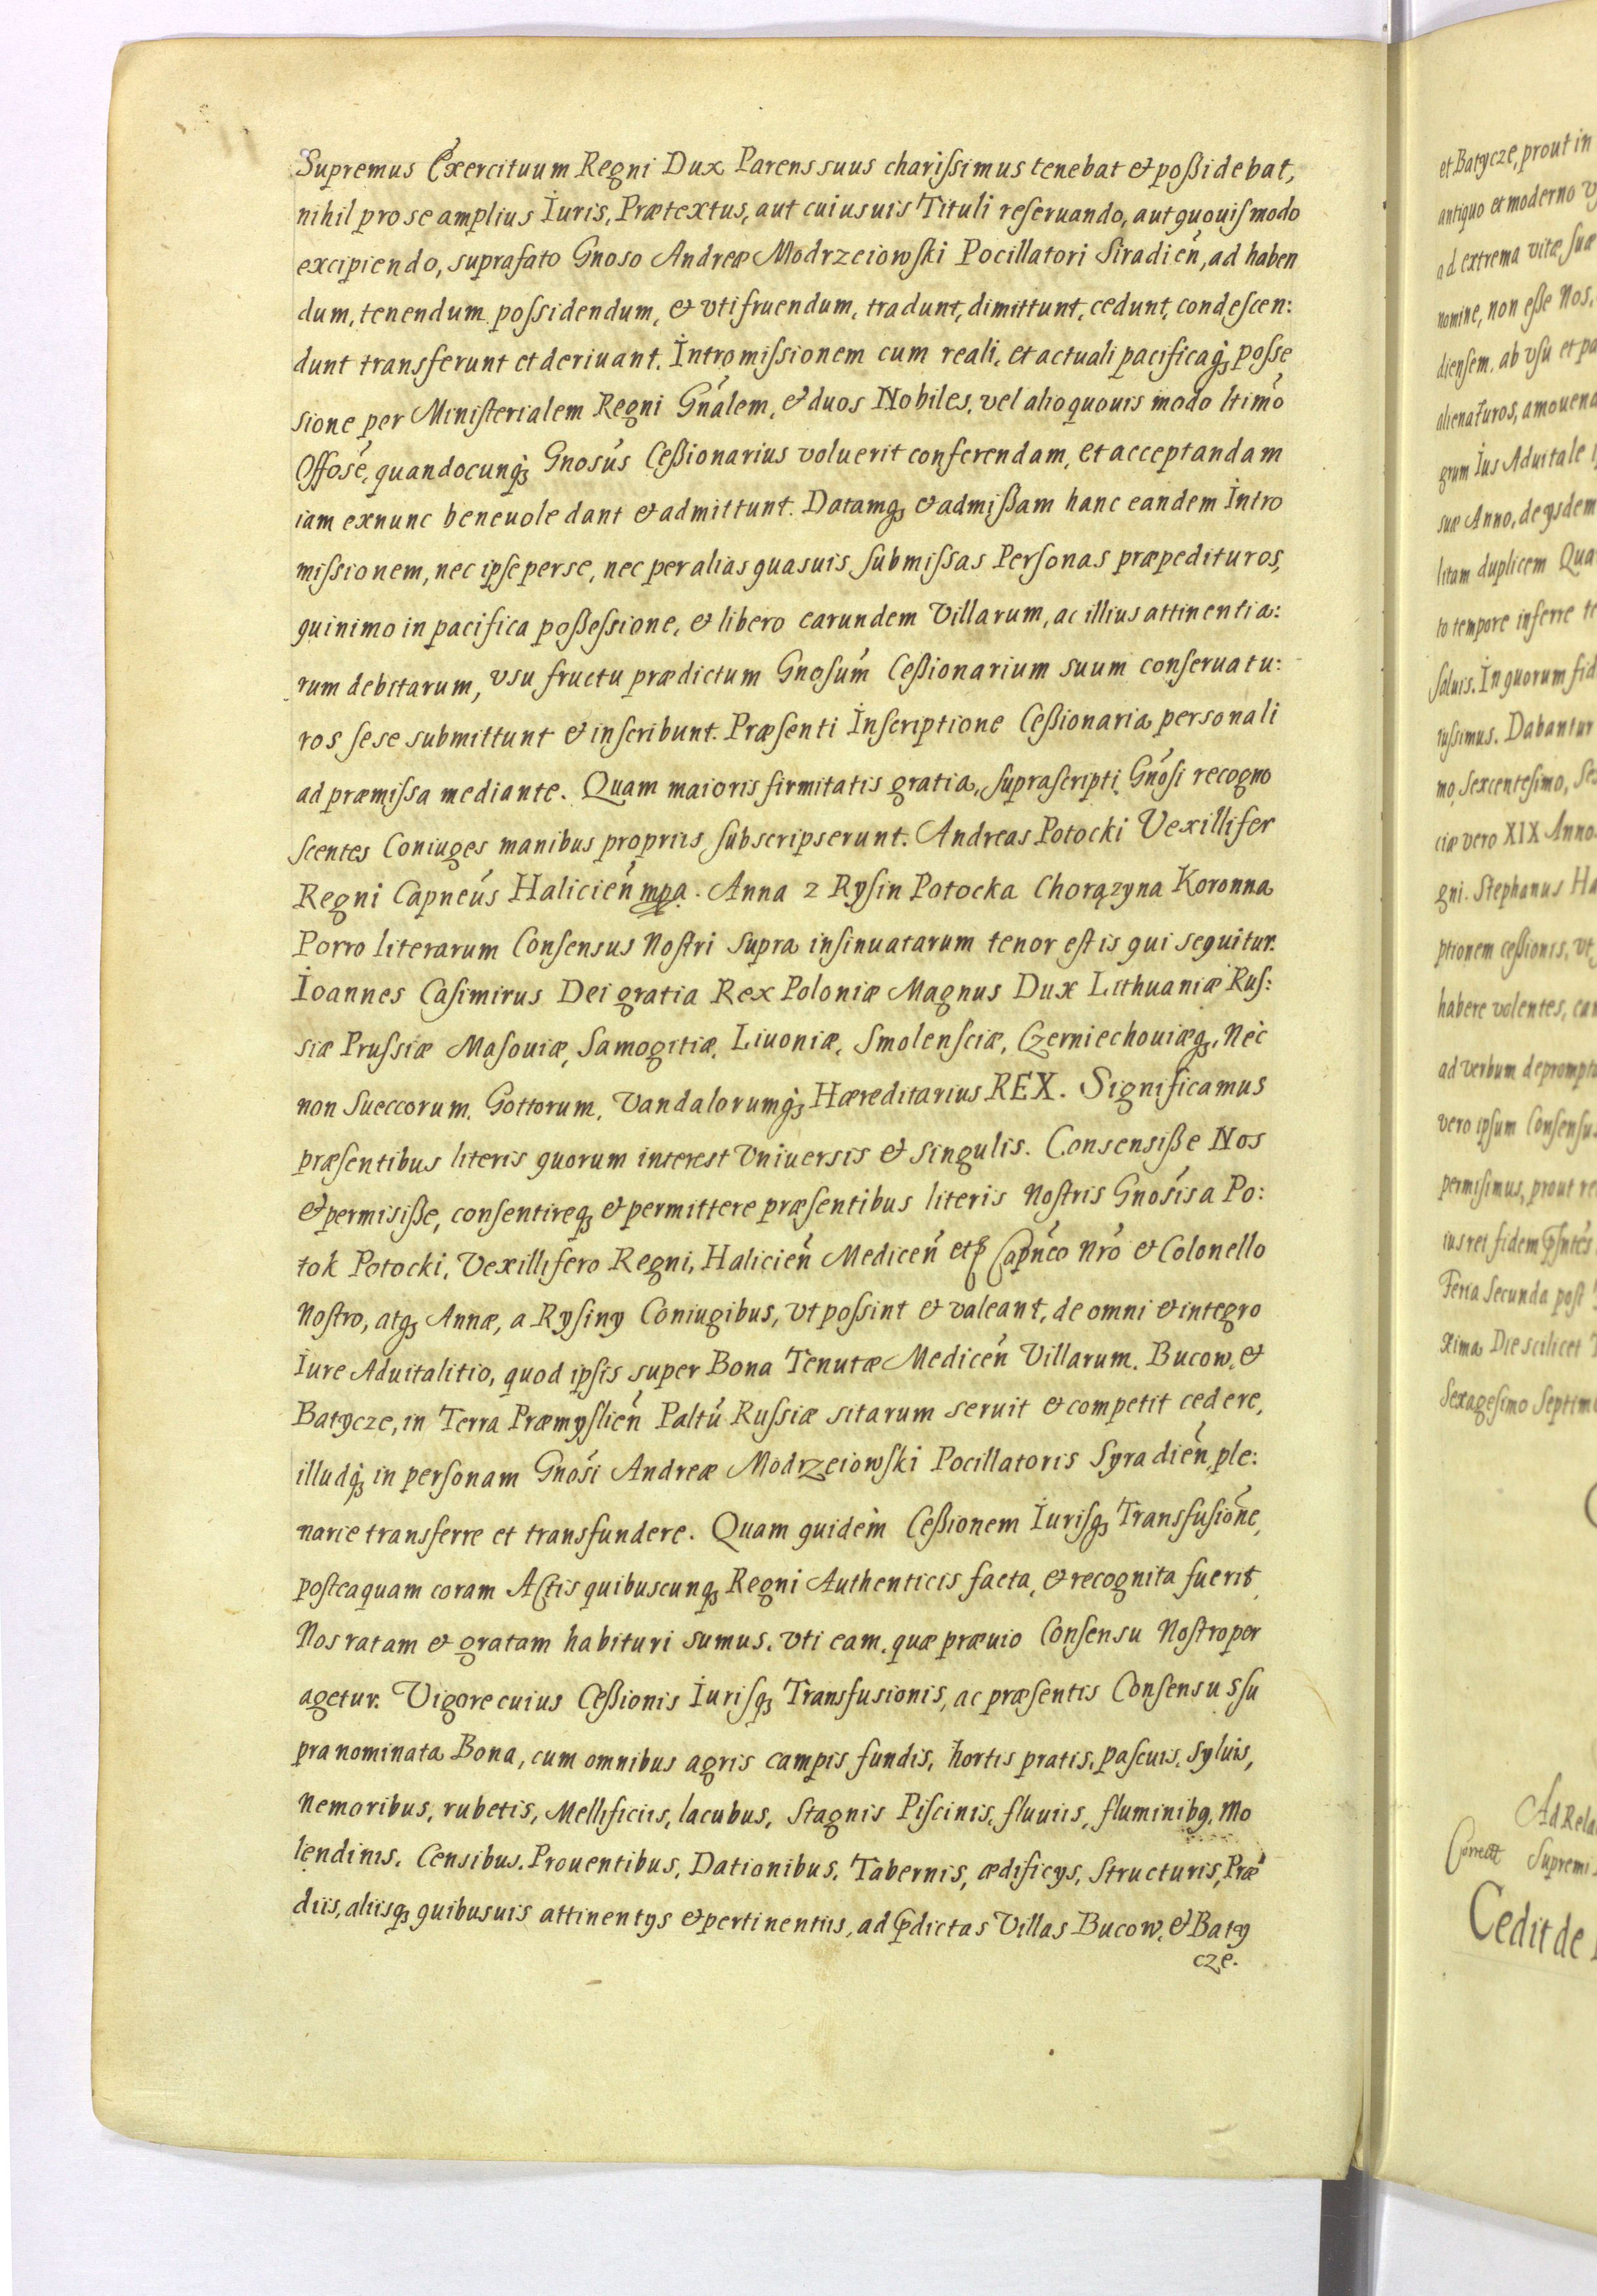 Supremus Exercituum Regni Dux Parens suus charissimus tenebat & possidebat,
nihil pro se amplius Iuris, Prætextus, aut cuiusuis Tituli reseruando, aut quouis modo
excipiendo, suprafato Gnoso Andreæ Modrzeiowski Pocillatori Siradień, ad haben
dum, tenendum possidendum, & vtifruendum, tradunt, dimittunt, cedunt, condescen:
dunt transferunt et deriuant. Intromissionem cum reali, et actuali pacificaq; posse
sione per Ministerialem Regni Gnálem, & duos Nobiles, vel alio quouis modo ltimó
Offosé, quandocunq; Gnosús Cessionarius voluerit conferendam, et acceptandam
iam exnunc beneuole dant & admittunt. Datamq; & admissam hanc eandem Intro
missionem, nec ipse per se, nec per alias quasuis submissas Personas præpedituros,
quinimo in pacifica possessione, & libero earundem Villarum, ac illius attinentia:
rum debitarum, vsu fructu prædictum Gnosúm Cessionarium suum conseruatu:
ros sese submittunt & inscribunt. Præsenti Inscriptione Cessionaria personali
ad præmissa mediante. Quam maioris firmitatis gratia, suprascripti Gnósi recogno
scentes Coniuges manibus propriis subscripserunt. Andreas Potocki Vexillifer
Regni Capneús Halicień mpa. Anna z Rysin Potocka Chorązyna Koronna
Porro literarum Consensus Nostri supra insinuatarum tenor est is qui sequitur.
Ioannes Casimirus Dei gratia Rex Poloniæ Magnus Dux Lithuaniæ Rus:
siæ Prussiæ Masouiæ, Samogitiæ, Liuoniæ, Smolensciæ, Czerniechouiæq;, Nec
non Sueccorum, Gottorum, Vandalorumq; Hæreditarius REX. Significamus
præsentibus literis quorum interest Vniuersis & singulis. Consensisse Nos
& permisisse, consentireq; & permittere præsentibus literis Nostris Gnosís a Po:
tok Potocki, Vexillifero Regni, Halicień Mediceń etc Capnéo Nró & Colonello
Nostro, atq; Annæ, a Rysiny Coniugibus, vt possint & valeant, de omni & integro
Iure Aduitalitio, quod ipsis super Bona Tenutæ Medicén Villarum. Bucow, &
Batycze, in Terra Præmyslień Paltú Russiæ sitarum seruit & competit cedere,
illudq; in personam Gnosi Andreæ Modrzeiowski Pocillatoris Syradień, ple:
narie transferre et transfundere. Quam quidem Cessionem Iurisq; Transfusióne,
posteaquam coram Actis quibuscunq; Regni Authenticis facta, & recognita fuerit
Nos ratam & gratam habituri sumus, vti eam, quæ præuio Consensu Nostro per
agetur. Vigore cuius Cessionis Iurisq; Transfusionis, ac præsentis Consensus, su
pra nominata Bona, cum omnibus agris campis fundis, hortis pratis, pascuis, syluis,
Nemoribus, rubetis, Mellificiis, lacubus, Stagnis Piscinis, fluuiis, fluminibq, Mo
lendinis, Censibus, Prouentibus, Dationibus, Tabernis, ædificys, Structuris, Præ
diis, aliisq; quibusuis attinentys & pertinentiis, ad pdictas Villas Bucow, & Baty
cze.
et Batycze, prout in
antiquo et moderno
ad extrema vitæ suæ
nomine, non esse Nos,
diensem, ab vsu et pa
alienaturos, amouen
grum Ius Aduitale
suæ Anno, de ysdem
litam duplicem Qua
to tempore inferre te
saluis. In quorum fid
iussimus. Dabantur
mo, Sexcentesimo, Se
ciæ vero XIX Anno
gni. Stephanus Ha
ptionem cessionis, vt
habere volentes, ea
ad verbum deprompt
vero ipsum Consensu
permisimus, prout re
ius rei fidem pntes
Feria Secunda post
xima Die scilicet
Sexagesimo Septim
Ad Rela
Correct Supremi
Cedit de